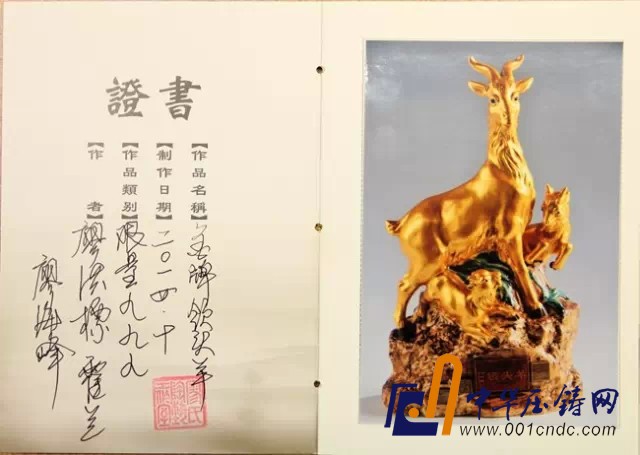 證書
【作品名稱】金牌領头羊
【制作日期】二〇一四·十
【作品類別】限量九九九
【作者】廖洪標 霍兰
廖海峰
中华压铸网
www.001cndc.com